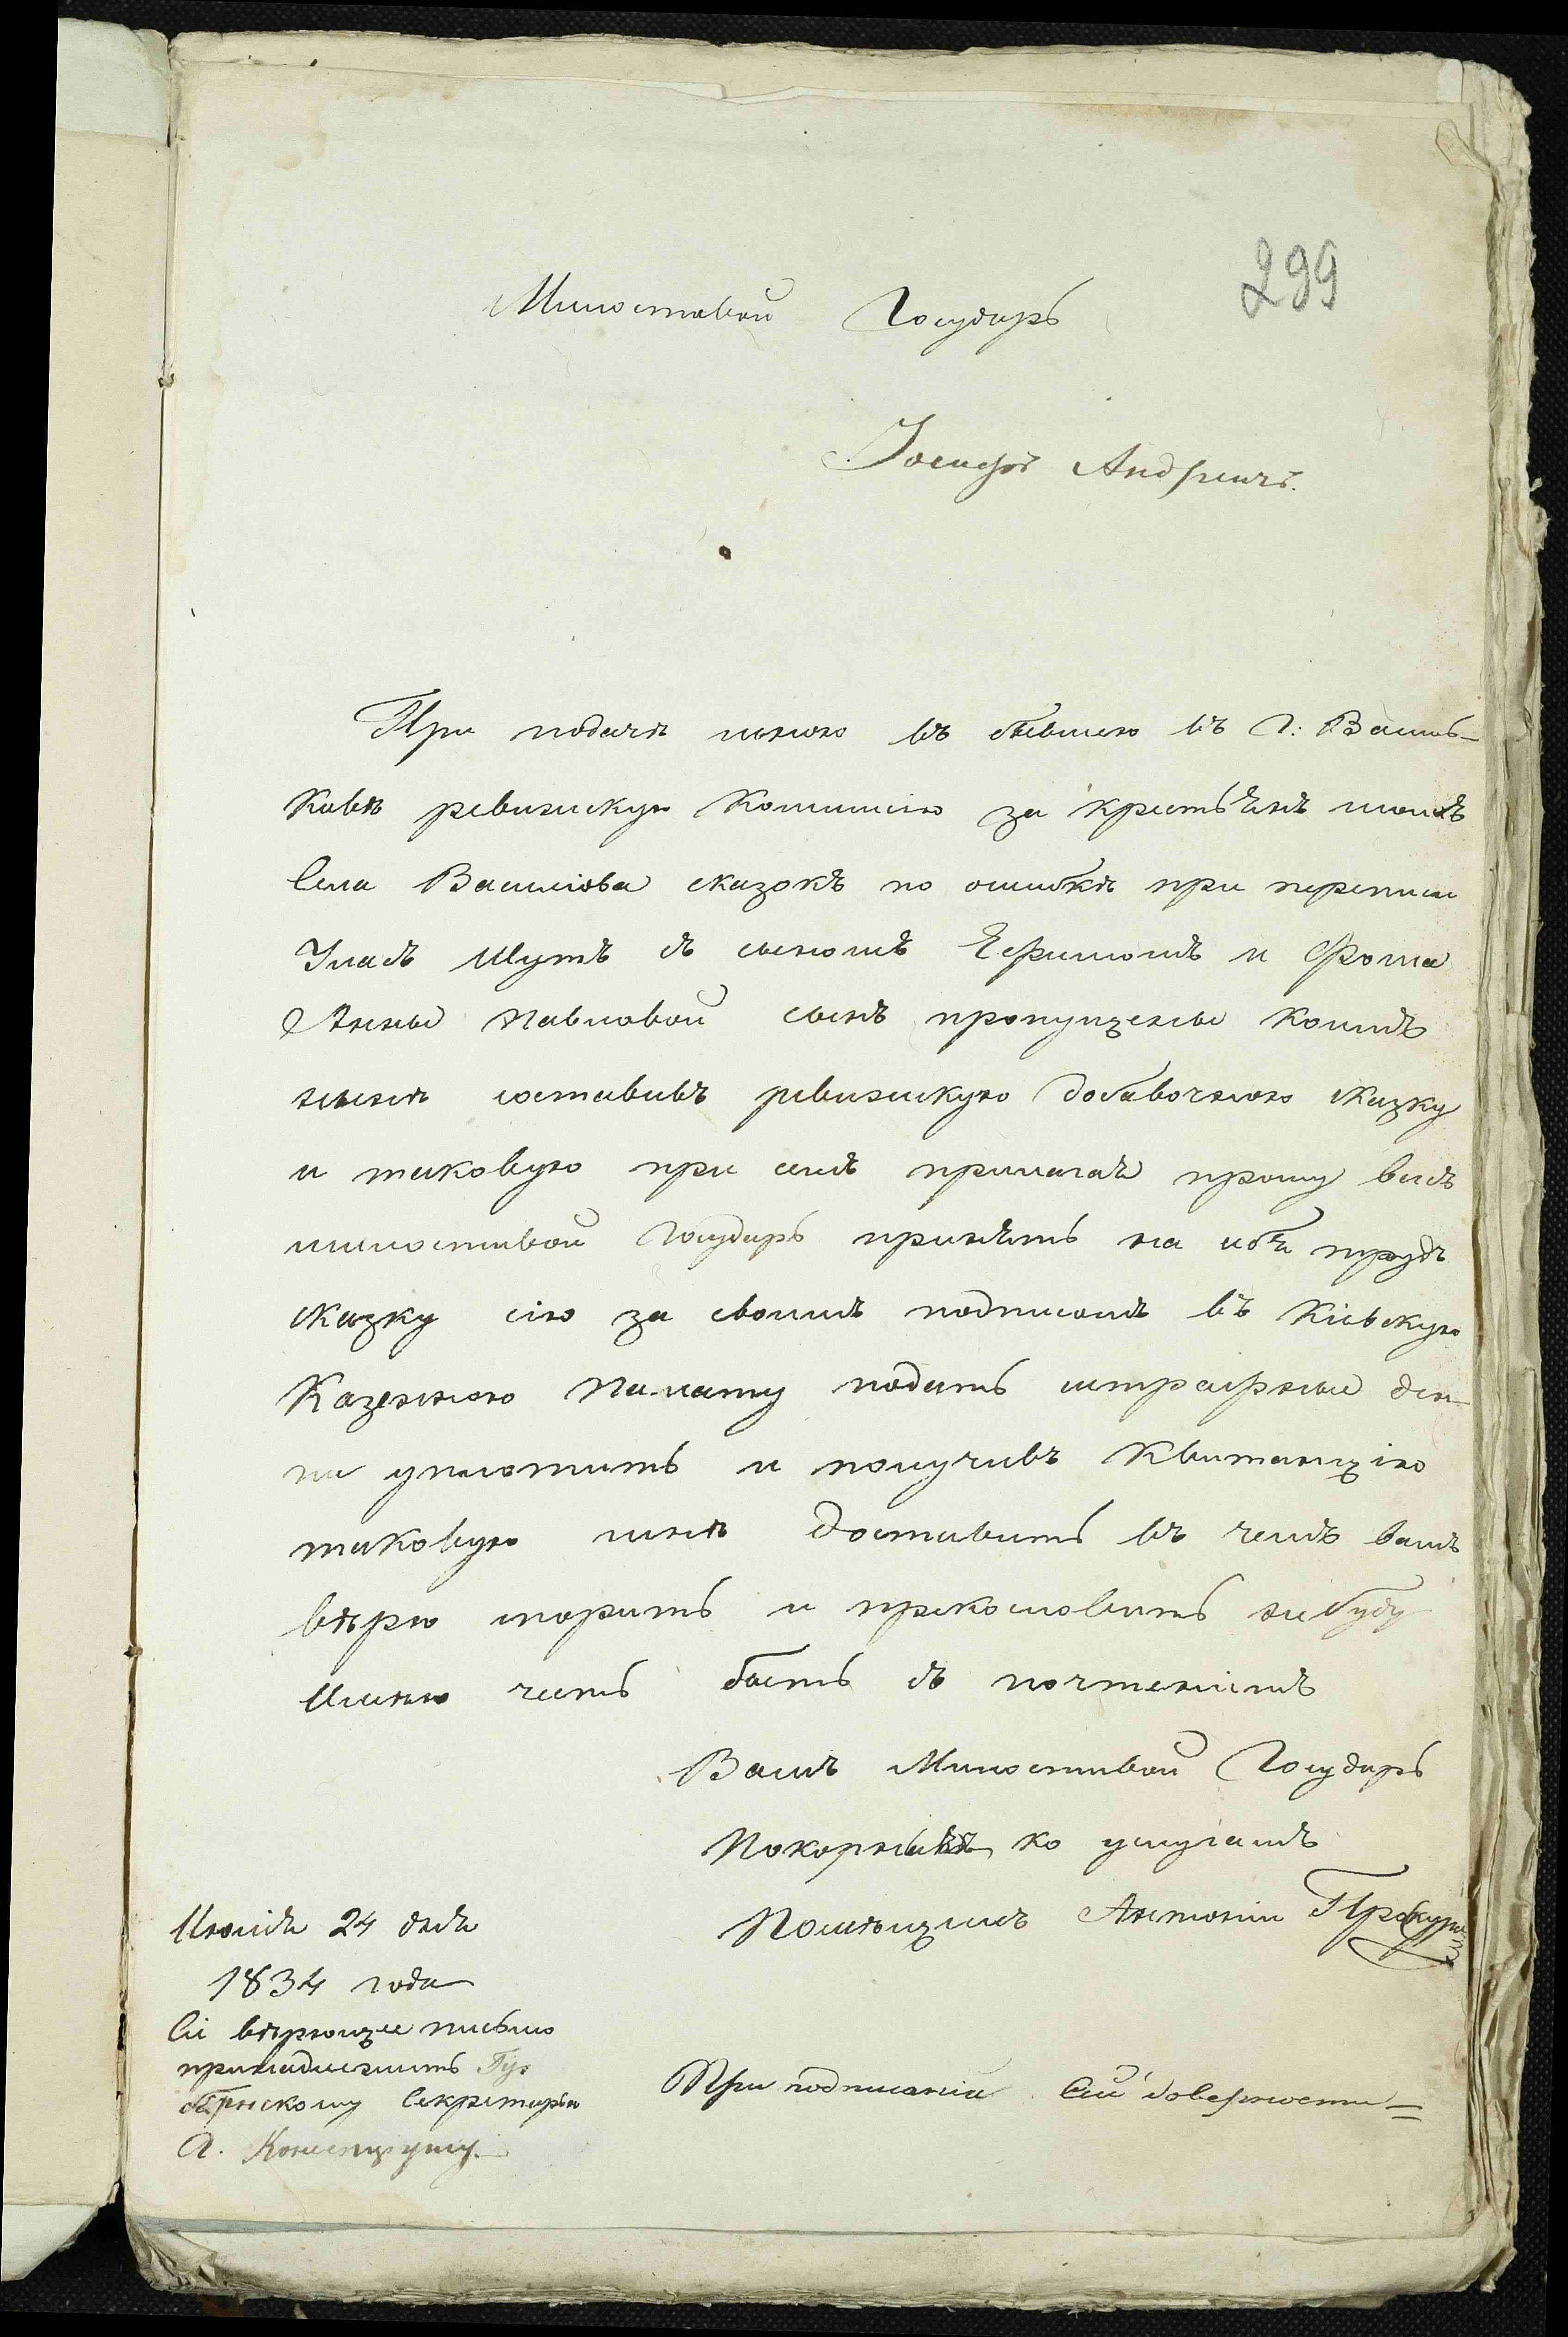 299
Милостивой Государь
Іосифъ Андреичъ.
При подачѣ мною въ бывшею въ г: Василь-
ковѣ ревизскую Коммисію за крестьянъ моихъ
Села Василіова сказокъ по ошибкѣ при переписи
Уласъ Шутъ съ сыномъ Ефимомъ и Фома
Анны Павловой сынъ пропущены коимъ
нынѣ составивъ ревизскую добавочною сказку
и таковую при семъ прилагая прошу васъ
милостивой Государь принять на себя трудъ
сказку сію за своимъ подписомъ въ Кіевскую
Казенною Палату подать штрафные ден-
ги уплотить и получивъ Квитанцію
таковую мнѣ доставить въ чемъ вамъ
вѣрю спорить и прекословить небуду
Имѣю честь быть съ почтеніемъ
Вашъ Милостивой Государь
Покорный ко услугамъ
Помѣщикъ Антоній
Июлія 24 дня
1834 года
Сіе вѣрющее письмо
принадлежитъ Гу
бернскому Секретарю
О.
При подписаніи сей довѣрности